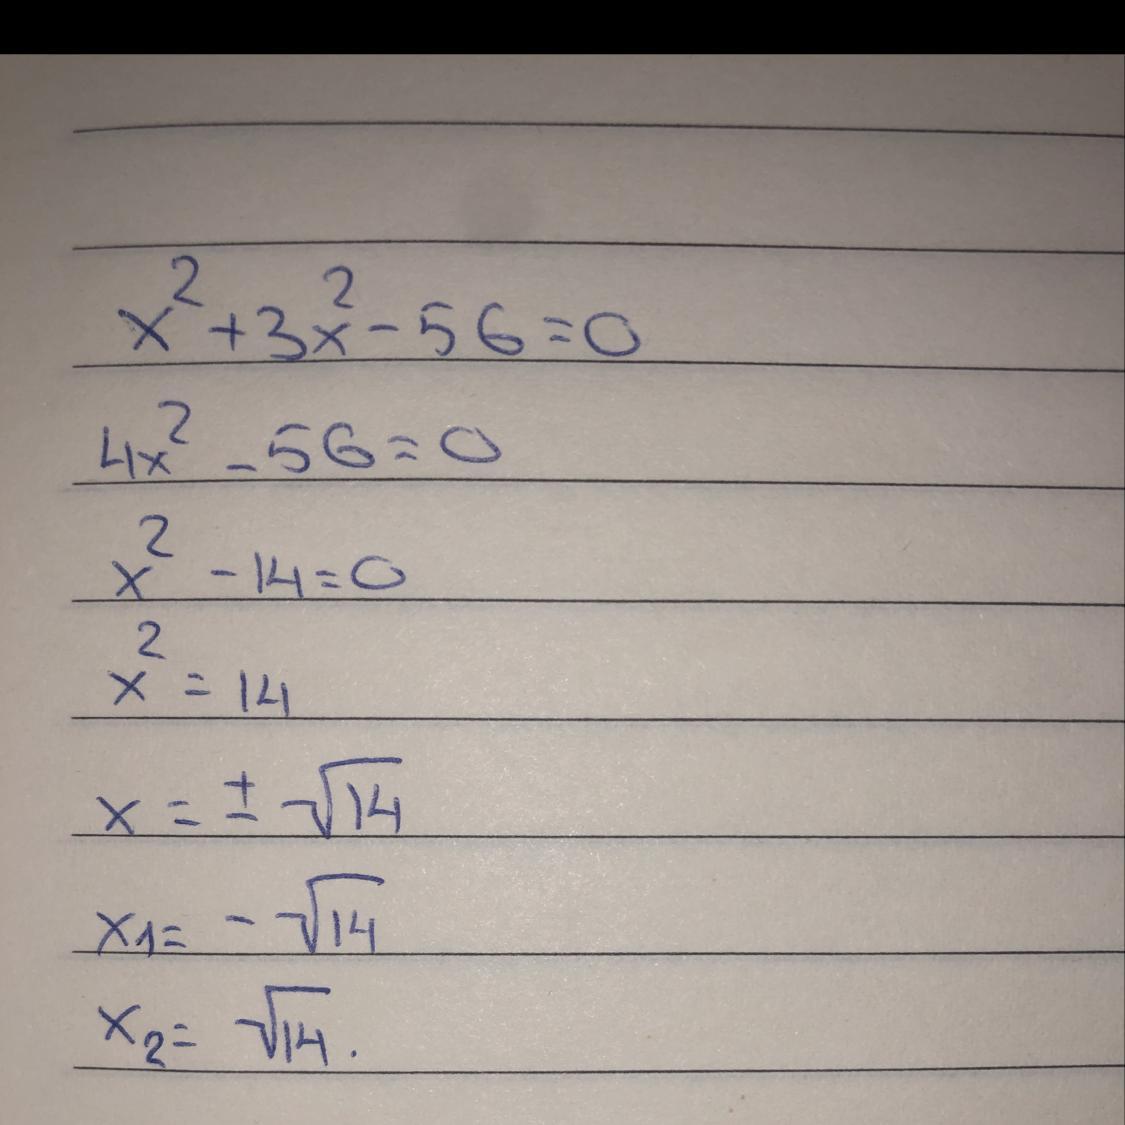 x² + 3x² - 56 = 0
4x² - 56 = 0
x² - 14 = 0
x² = 14
x = ± √14
x₁ = - √14
x₂ = √14.